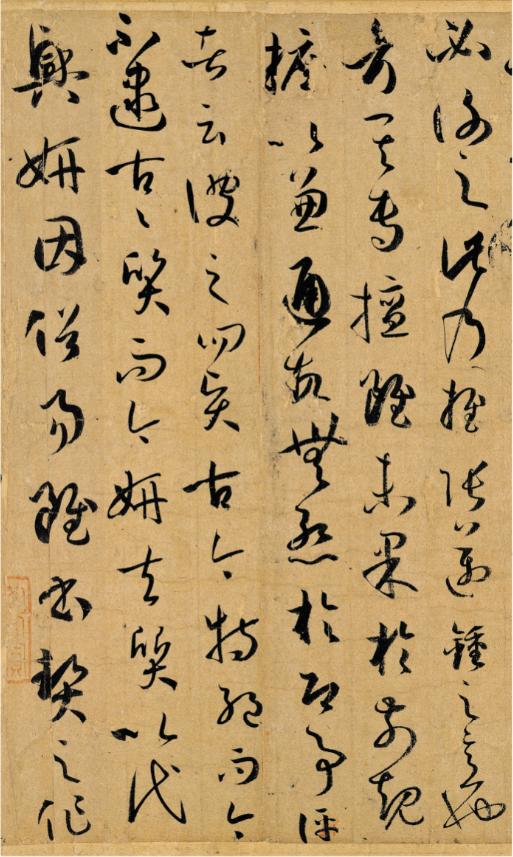 必謝之此乃推張邁鍾之意也
考其專擅雖未果於前規
摭以兼通故無慚於即事評
者云彼之四賢古今特絕而今
不逮古〻質而今妍夫質以代
興妍因俗易雖書契之作